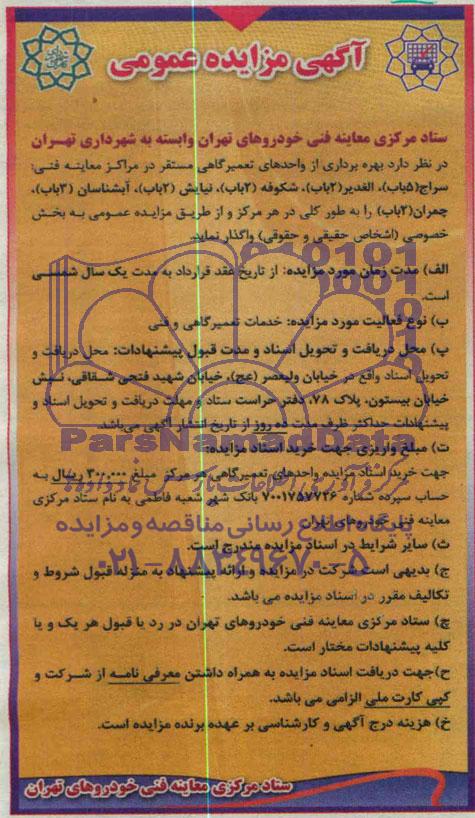 آگهی مزایده عمومی
ستاد مرکزی معاینه فنی خودروهای تهران وابسته به شهرداری تهران
در نظر دارد بهره برداری از واحدهای تعمیرگاهی مستقر در مراکز معاینه فنی:
سراج(۵باب)، الغدیر(۲باب)، شکوفه (۲باب)، نیایش (۲باب)، آبشناسان (۳باب)،
چمران(۲باب) را به طور کلی در هر مرکز و از طریق مزایده عمومی به بخش
خصوصی (اشخاص حقیقی و حقوقی) واگذار نماید.
الف) مدت زمان مورد مزایده: از تاریخ عقد قرارداد به مدت یک سال شمسی
است.
ب) نوع فعالیت مورد مزایده: خدمات تعمیرگاهی و فنی
پ) محل دریافت و تحویل اسناد و مدت قبول پیشنهادات: محل دریافت و
تحویل اسناد واقع در خیابان ولیعصر (عج)، خیابان شهید فتحی شقاقی، نبش
خیابان بیستون، پلاک ۷۸، دفتر حراست ستاد و مهلت دریافت و تحویل اسناد و
پیشنهادات حداکثر ظرف مدت ده روز از تاریخ انتشار آگهی می‌باشد.
ParsNamadData
ت) مبلغ واریزی جهت خرید اسناد مزایده:
جهت خرید اسناد مزایده واحدهای تعمیرگاهی هر مرکز مبلغ ۳۰۰،۰۰۰ ریال به
حساب سپرده شماره ۷۰۰۱۷۵۷۷۲۶ بانک شهر شعبه فاطمی به نام ستاد مرکزی
معاینه فنی خودروهای تهران
پایگاه اطلاع رسانی مناقصه و مزایده
ث) سایر شرایط در اسناد مزایده مندرج است.
۰۲۱-۸۸۳۴۹۶۷۰-۵
ج) بدیهی است شرکت در مزایده و ارائه پیشنهاد به منزله قبول شروط و
تکالیف مقرر در اسناد مزایده می باشد.
چ) ستاد مرکزی معاینه فنی خودروهای تهران در رد یا قبول هر یک و یا
کلیه پیشنهادات مختار است.
ح)جهت دریافت اسناد مزایده به همراه داشتن معرفی نامه از شرکت و
کپی کارت ملی الزامی می باشد.
خ) هزینه درج آگهی و کارشناسی بر عهده برنده مزایده است.
ستاد مرکزی معاینه فنی خودروهای تهران